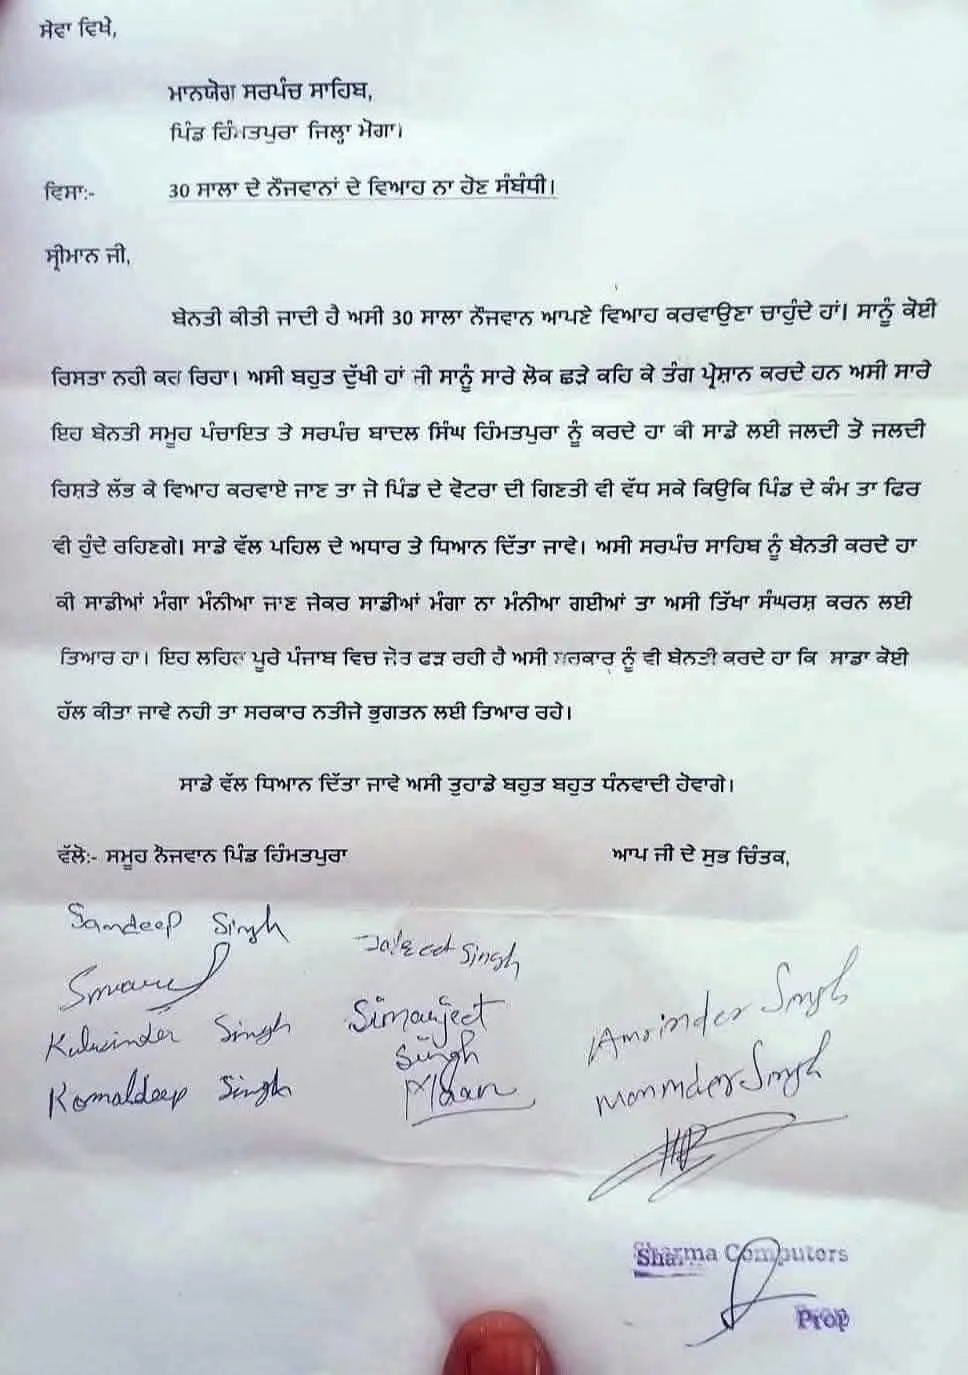 ਸੇਵਾ ਵਿਖੇ,
ਮਾਨਯੋਗ ਸਰਪੰਚ ਸਾਹਿਬ,
ਪਿੰਡ ਹਿੰਮਤਪੁਰਾ ਜਿਲ੍ਹਾ ਮੋਗਾ।
ਵਿਸਾ:- 30 ਸਾਲਾ ਦੇ ਨੌਜਵਾਨਾਂ ਦੇ ਵਿਆਹ ਨਾ ਹੋਣ ਸੰਬੰਧੀ।
ਸ੍ਰੀਮਾਨ ਜੀ,
ਬੇਨਤੀ ਕੀਤੀ ਜਾਦੀ ਹੈ ਅਸੀ 30 ਸਾਲਾ ਨੌਜਵਾਨ ਆਪਣੇ ਵਿਆਹ ਕਰਵਾਉਣਾ ਚਾਹੁੰਦੇ ਹਾਂ। ਸਾਨੂੰ ਕੋਈ
ਰਿਸਤਾ ਨਹੀ ਕਰ ਰਿਹਾ। ਅਸੀ ਬਹੁਤ ਦੁੱਖੀ ਹਾਂ ਜੀ ਸਾਨੂੰ ਸਾਰੇ ਲੋਕ ਛੜੇ ਕਹਿ ਕੇ ਤੰਗ ਪ੍ਰੇਸ਼ਾਨ ਕਰਦੇ ਹਨ ਅਸੀ ਸਾਰੇ
ਇਹ ਬੇਨਤੀ ਸਮੂਹ ਪੰਚਾਇਤ ਤੇ ਸਰਪੰਚ ਬਾਦਲ ਸਿੰਘ ਹਿੰਮਤਪੁਰਾ ਨੂੰ ਕਰਦੇ ਹਾ ਕੀ ਸਾਡੇ ਲਈ ਜਲਦੀ ਤੋ ਜਲਦੀ
ਰਿਸ਼ਤੇ ਲੱਭ ਕੇ ਵਿਆਹ ਕਰਵਾਏ ਜਾਣ ਤਾ ਜੋ ਪਿੰਡ ਦੇ ਵੋਟਰਾ ਦੀ ਗਿਣਤੀ ਵੀ ਵੱਧ ਸਕੇ ਕਿਉਕਿ ਪਿੰਡ ਦੇ ਕੰਮ ਤਾ ਫਿਰ
ਵੀ ਹੁੰਦੇ ਰਹਿਣਗੇ। ਸਾਡੇ ਵੱਲ ਪਹਿਲ ਦੇ ਅਧਾਰ ਤੇ ਧਿਆਨ ਦਿੱਤਾ ਜਾਵੇ। ਅਸੀ ਸਰਪੰਚ ਸਾਹਿਬ ਨੂੰ ਬੇਨਤੀ ਕਰਦੇ ਹਾ
ਕੀ ਸਾਡੀਆਂ ਮੰਗਾ ਮੰਨੀਆ ਜਾਣ ਜੇਕਰ ਸਾਡੀਆਂ ਮੰਗਾ ਨਾ ਮੰਨੀਆ ਗਈਆਂ ਤਾ ਅਸੀ ਤਿੱਖਾ ਸੰਘਰਸ਼ ਕਰਨ ਲਈ
ਤਿਆਰ ਹਾ। ਇਹ ਲਹਿਰ ਪੂਰੇ ਪੰਜਾਬ ਵਿਚ ਜੋਰ ਫੜ ਰਹੀ ਹੈ ਅਸੀ ਸਰਕਾਰ ਨੂੰ ਵੀ ਬੇਨਤੀ ਕਰਦੇ ਹਾ ਕਿ ਸਾਡਾ ਕੋਈ
ਹੱਲ ਕੀਤਾ ਜਾਵੇ ਨਹੀ ਤਾ ਸਰਕਾਰ ਨਤੀਜੇ ਭੁਗਤਨ ਲਈ ਤਿਆਰ ਰਹੇ।
ਸਾਡੇ ਵੱਲ ਧਿਆਨ ਦਿੱਤਾ ਜਾਵੇ ਅਸੀ ਤੁਹਾਡੇ ਬਹੁਤ ਬਹੁਤ ਧੰਨਵਾਦੀ ਹੋਵਾਗੇ।
ਵੱਲੋ:- ਸਮੂਹ ਨੌਜਵਾਨ ਪਿੰਡ ਹਿੰਮਤਪੁਰਾ
ਆਪ ਜੀ ਦੇ ਸੁਭ ਚਿੰਤਕ,
Sandeep Singh
Singh
Kulwinder Singh
Komaldeep Singh
Simarjeet
Singh
Amrinder Singh
Maninder Singh
Sharma Computers
Prop